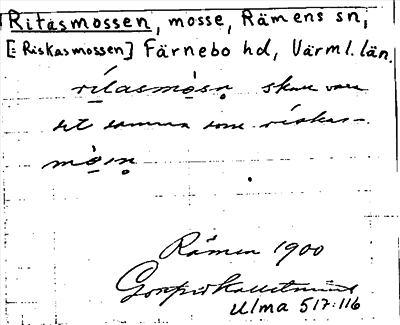 Ritasmossen, mosse, Rämens sn,
[= Riskasmossen] Färnebo hd, Värml. län.
ritasmòsn skall vara
det samma som riskas-
mòsn
Rämen 1900
Gottfrid Kallstenius
Ulma 517:116